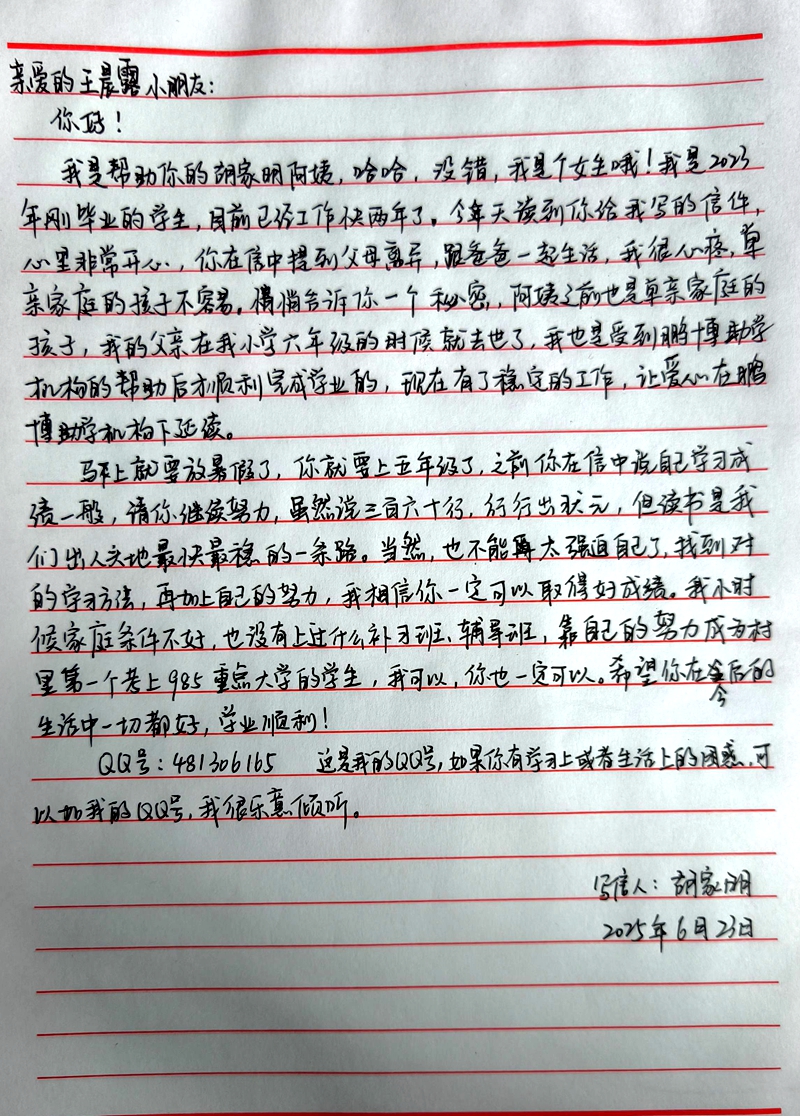 亲爱的王晨露小朋友：
你好！
我是帮助你的胡家明阿姨，哈哈，没错，我是个女生哦！我是2023
年刚毕业的学生，目前已经工作快两年了。今年天读到你给我写的信件，
心里非常开心，你在信中提到父母离异，跟爸爸一起生活，我很心疼，单
亲家庭的孩子不容易。悄悄告诉你一个秘密，阿姨之前也是单亲家庭的
孩子，我的父亲在我小学六年级的时候就去世了，我也是受到鹏博助学
机构的帮助后才顺利完成学业的，现在有了稳定的工作，让爱心在鹏
博助学机构下延续。
马上就要放暑假了，你就要上五年级了，之前你在信中说自己学习成
绩一般，请你继续努力，虽然说三百六十行，行行出状元，但读书是我
们出人头地最快最稳的一条路。当然，也不能再太强迫自己了，找到对
的学习方法，再加上自己的努力，我相信你一定可以取得好成绩。我小时
候家庭条件不好，也没有上过什么补习班、辅导班，靠自己的努力成为村
里第一个考上985重点大学的学生，我可以，你也一定可以。希望你在今后的
生活中一切都好，学业顺利！
QQ号：481306165 这是我的QQ号，如果你有学习上或者生活上的困惑，可
以加我的QQ号，我很乐意倾听。
写信人：胡家明
2025年6月23日